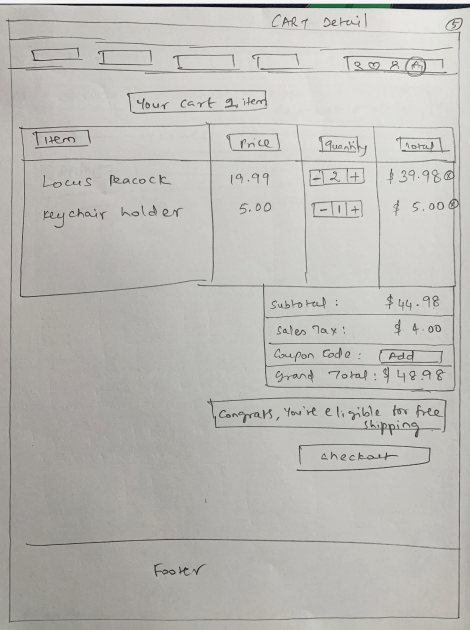 CART Detail
5
Your cart 2 item
Item Price Quantity Total
Locus Peacock 19.99 - 2 + $39.98 x
Keychair holder 5.00 - 1 + $ 5.00 x
Subtotal : $44.98
Sales Tax : $ 4.00
Coupon Code : Add
Grand Total : $48.98
Congrats, You're eligible for free
shipping
checkout
Footer